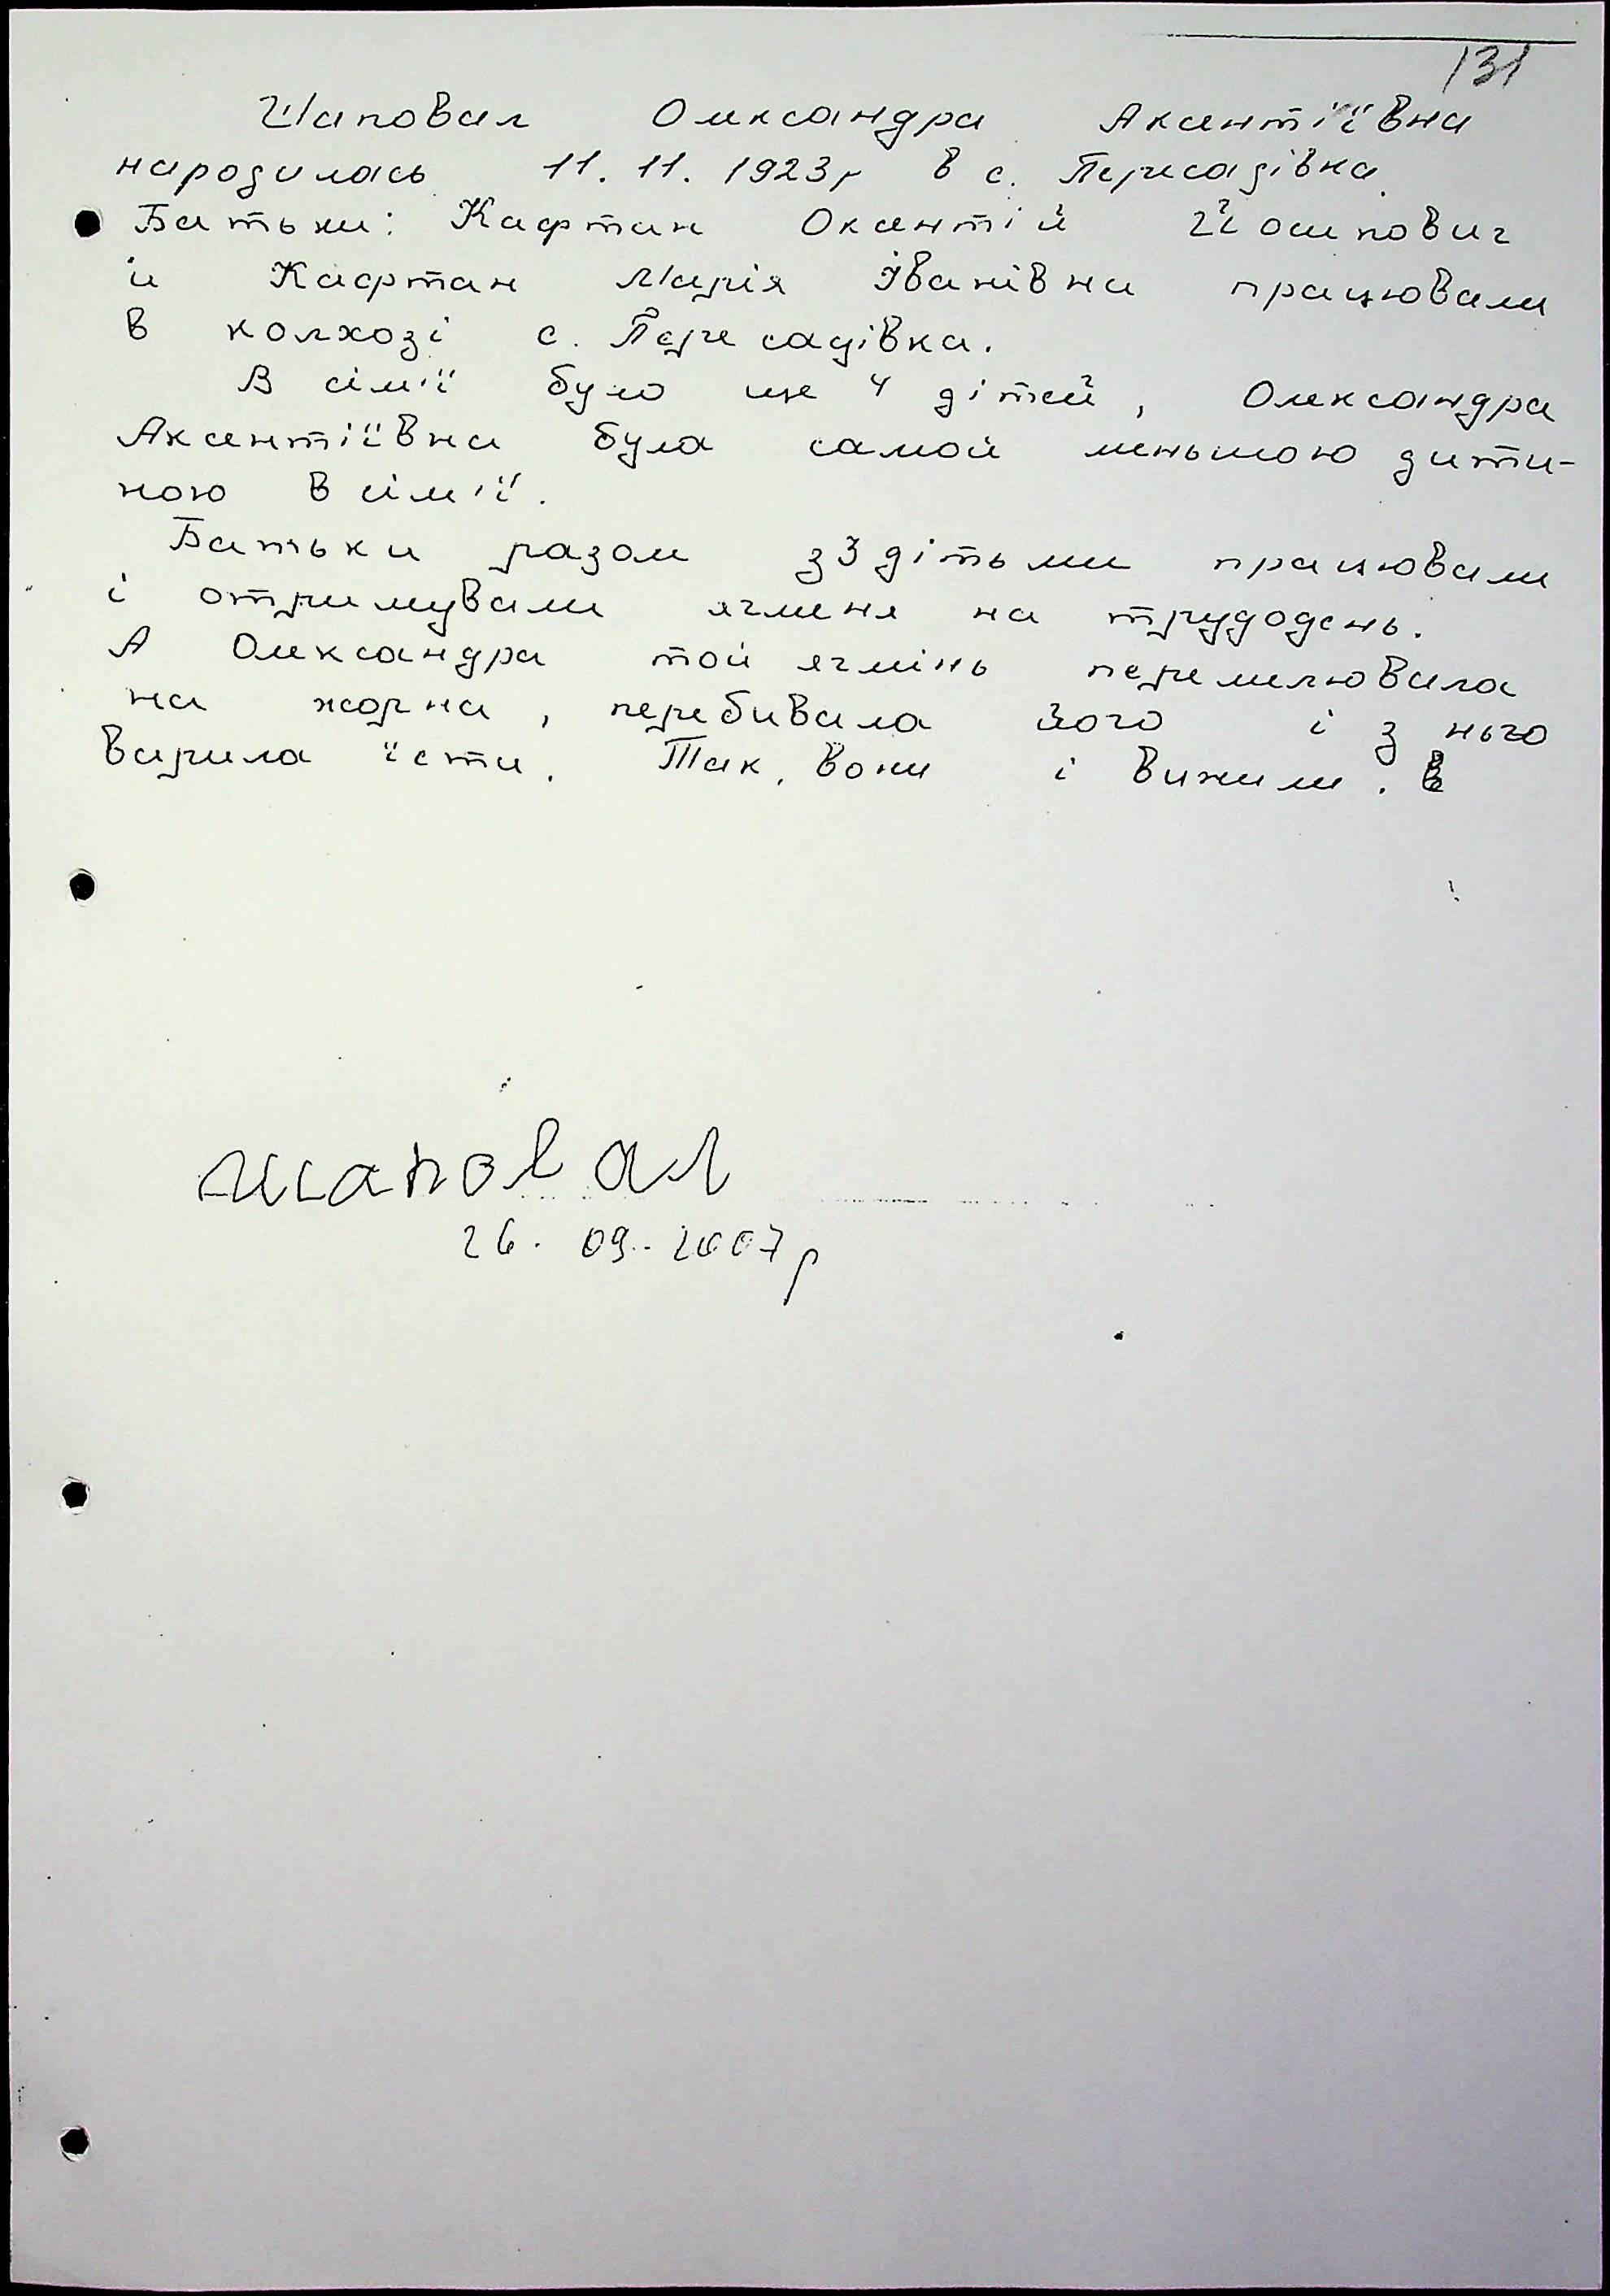 131
Шаповал Олександра Аксентіївна
народилась 11. 11. 1923р в с. Пересадівка.
Батьки: Кафтан Оксентій Йосипович
й Кафтан Марія Іванівна працювали
в колхозі с. Пересадівка.
В сім'ї було ще 4 дітей, Олександра
Аксентіївна була самой меньшою дити-
ною в сім'ї.
Батьки разом зі дітьми працювали
і отримували ячменя на трудодень.
А Олександра той ячмінь перемелювала
на жорна, перебивала його і з нього
варила їсти. Так, вони і вижили.
Шаповал
26. 09. 2007р